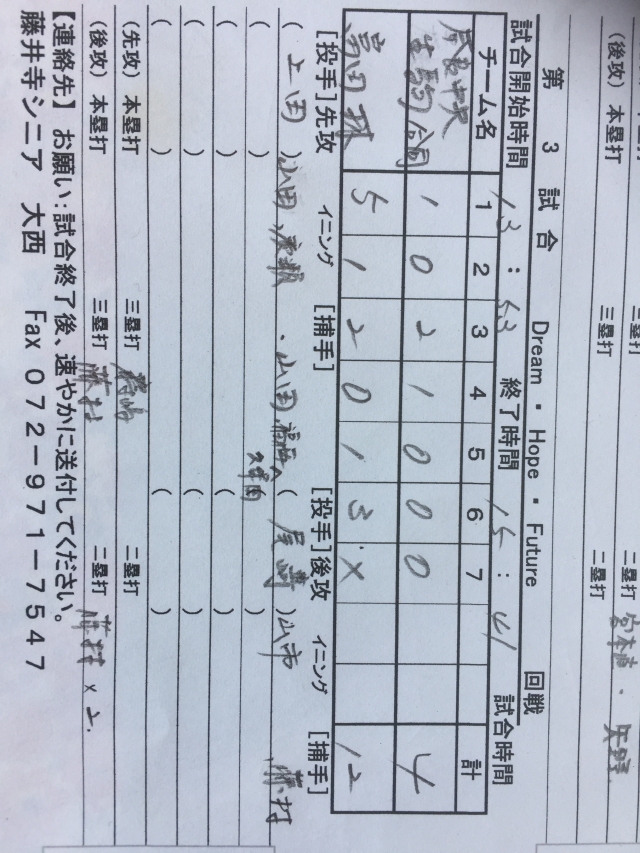 (後攻) 本塁打 三塁打 二塁打
第 3 試合 Dream ・ Hope ・ Future 回戦
試合開始時間 13 : 53 終了時間 15 : 41 試合時間
チーム名 1 2 3 4 5 6 7 計
奈良中央
生駒合同 1 0 2 1 0 0 0 4
富田林 5 1 2 0 1 3 X 12
[投手]先攻 イニング [捕手] [投手]後攻 イニング [捕手]
(上田) 山田 ・山田 (尾崎) 山市
( ) ( )
( ) ( )
( ) ( )
( ) ( )
(先攻) 本塁打 三塁打 二塁打
(後攻) 本塁打 三塁打 二塁打 ×2.
【連絡先】お願い:試合終了後、速やかに送付してください。
藤井寺シニア 大西 Fax 072-971-7547